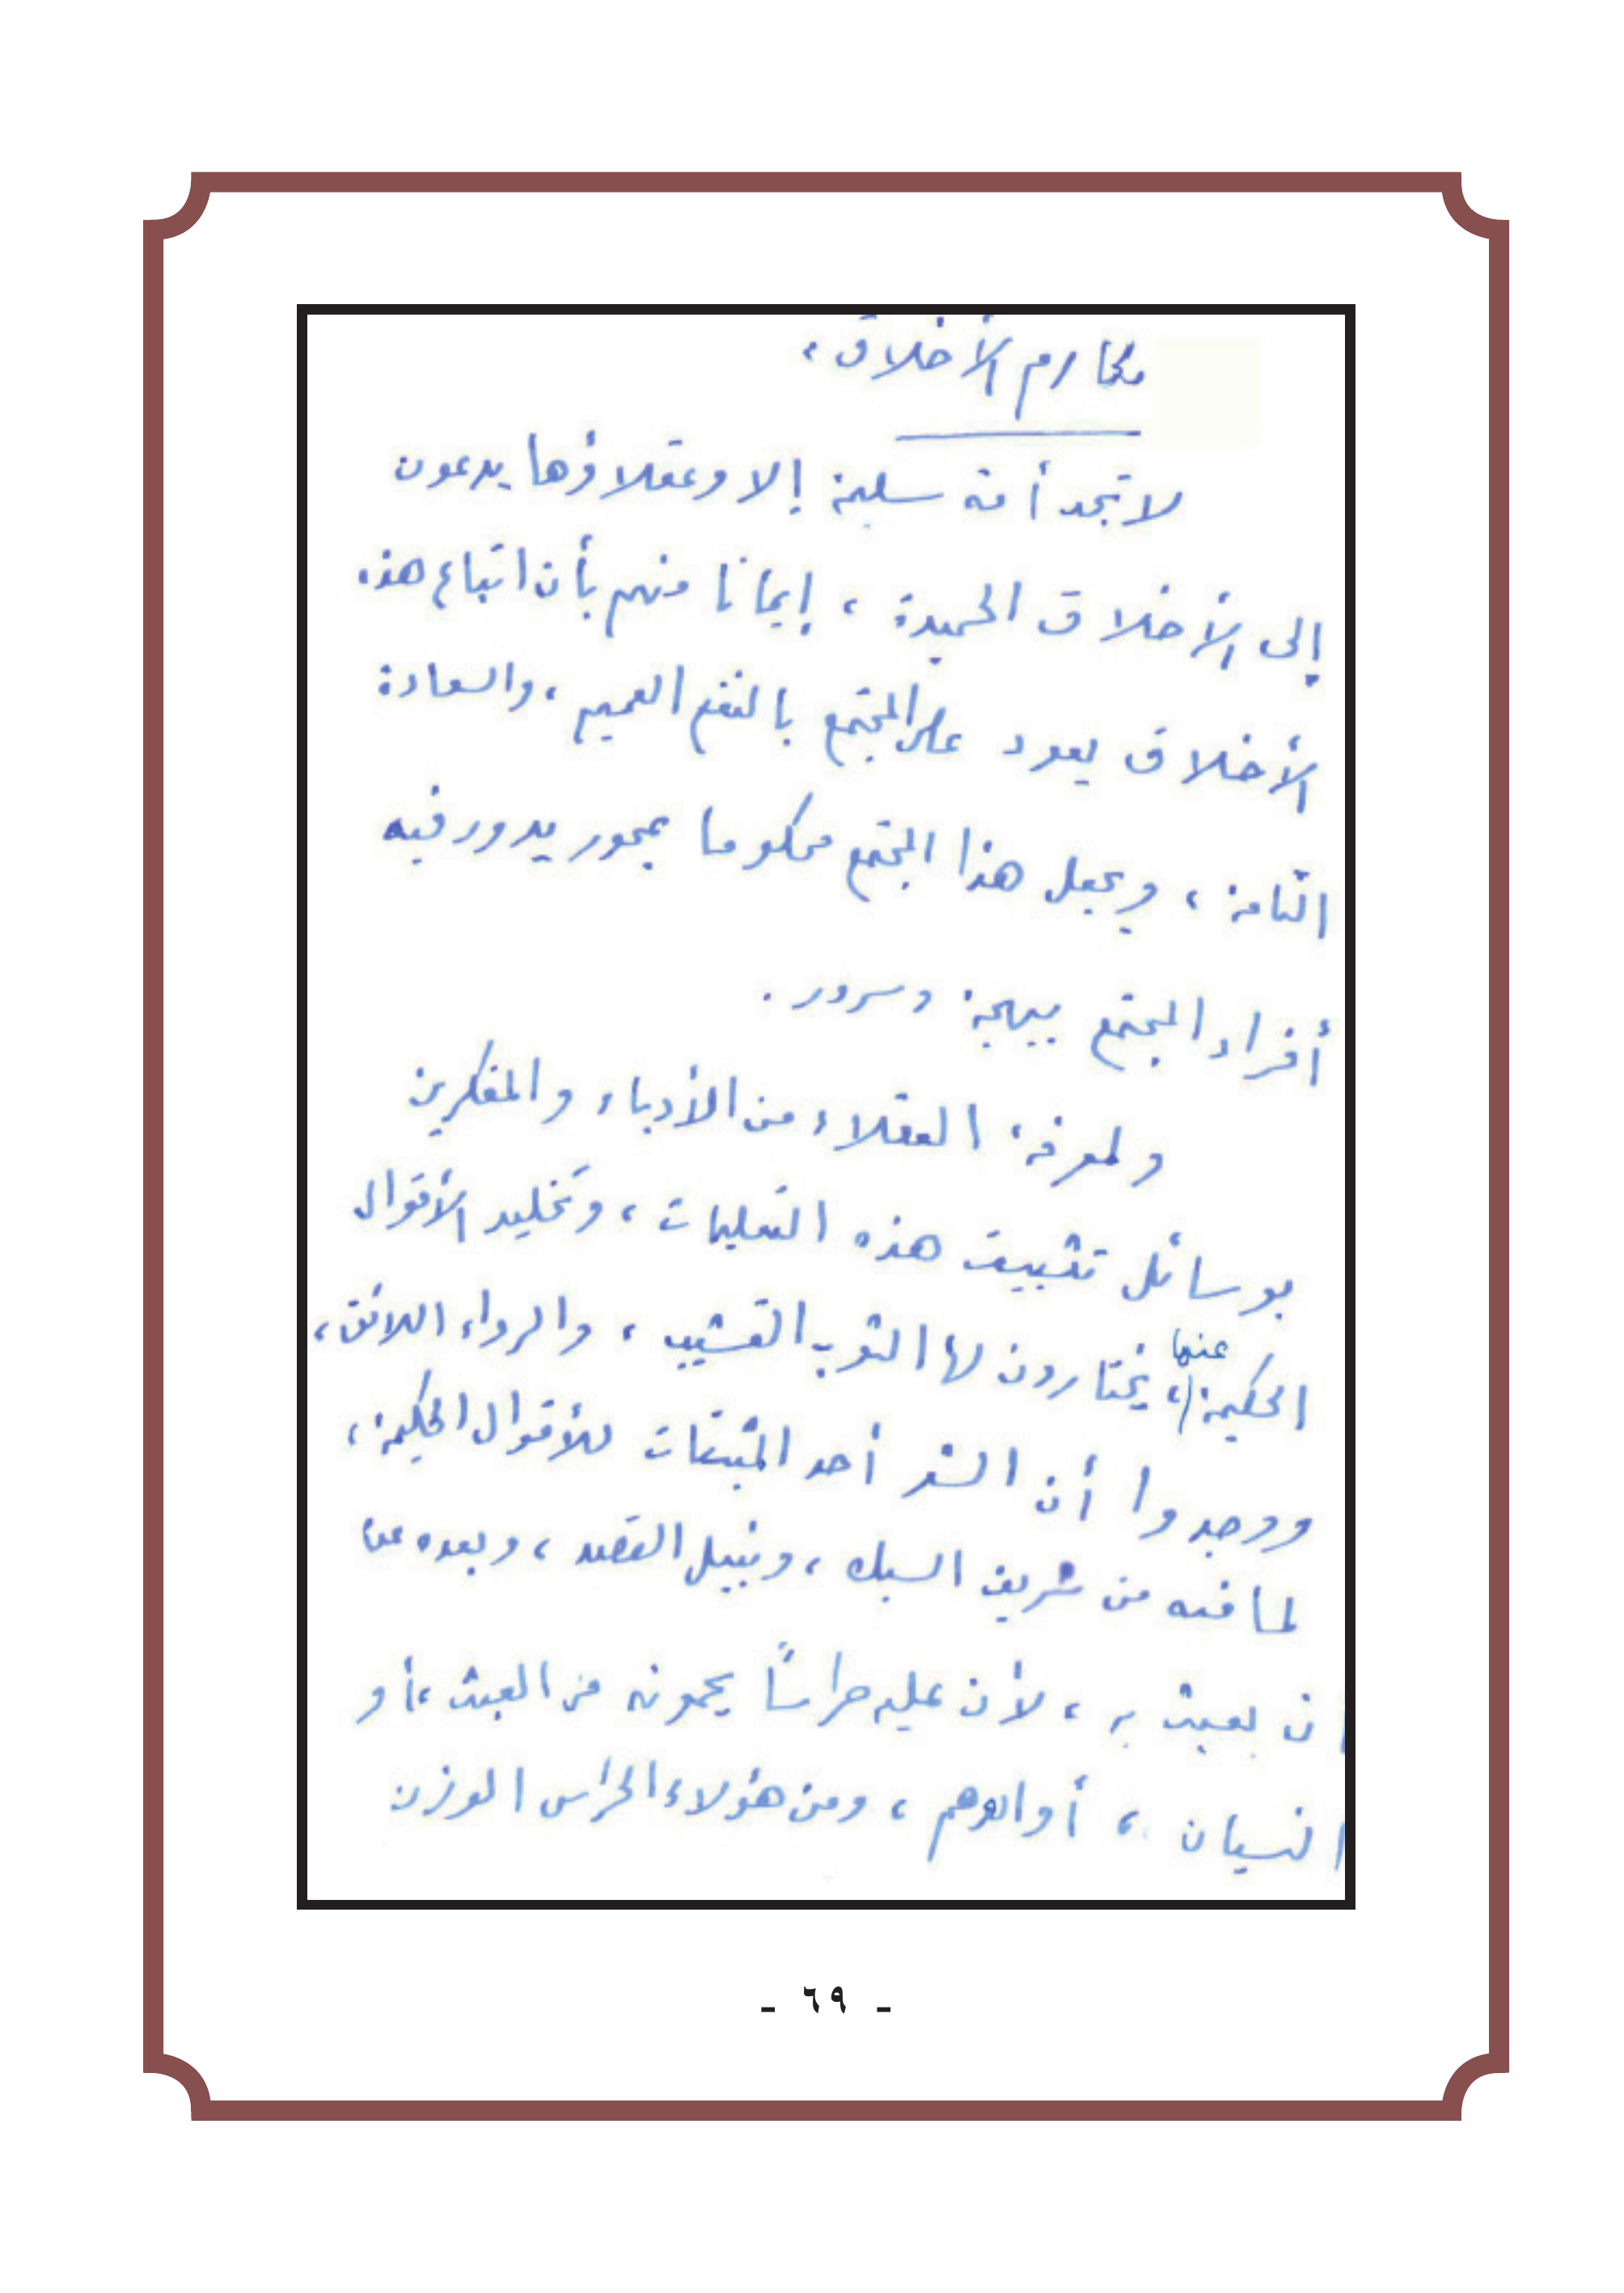 مكارم الأخلاق،
لا تجد أمة سليمة إلا وعقلاؤها يدعون
إلى الأخلاق الحميدة، إيمانا منهم بأن اتباع هذه
الأخلاق يعود على المجتمع بالنفع العميم، والسعادة
التامة، ويجعل هذا المجتمع محكوما بمحور يدور فيه
أفراد المجتمع ببهجة وسرور.
ولمعرفة العقلاء من الأدباء والمفكرين
بوسائل تثبيت هذه التعليمات، وتخليد الأقوال
الحكيمة عنها، يختارون لها الثوب القشيب، والرداء اللائق،
ووجدوا أن الشعر أحد المثبتات للأقوال الحكيمة،
لما فيه من شريف السبك، ونبيل القصد، وبعده عن
أن يعبث به، لأن عليه حراسًا يحمونه من العبث، أو
النسيان، أو الوهم، ومن هؤلاء الحراس الوزن
- ٦٩ -